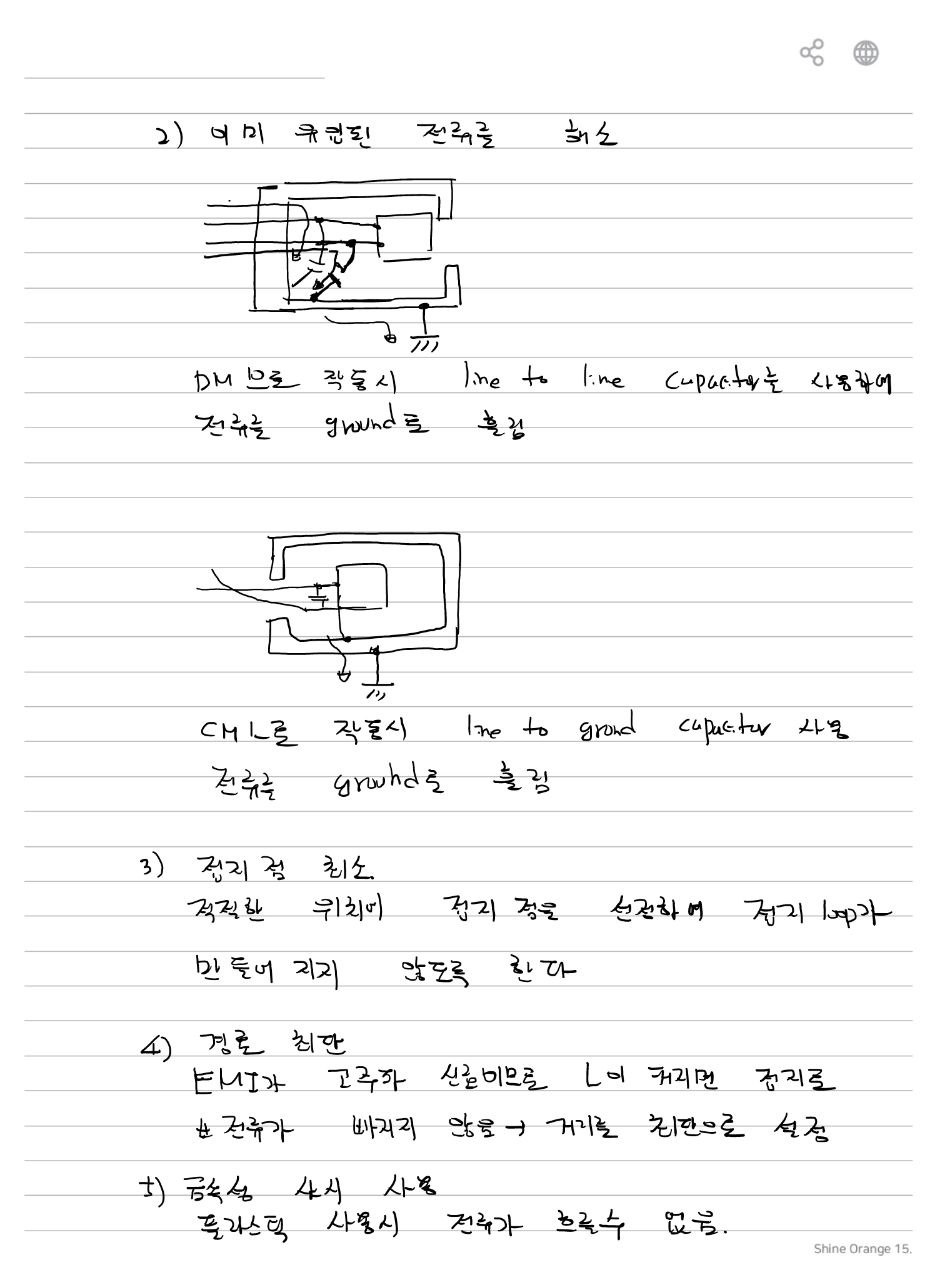 2) 이미 유입된 전류를 해소
DM 으로 작동시 line to line capacitor를 사용하여
전류를 ground로 흘림
CM 으로 작동시 line to ground capacitor 사용
전류를 ground로 흘림
3) 접지 점 최소.
적절한 위치에 접지 점을 선정하여 접지 loop가
만들어 지지 않도록 한다
4) 경로 최단
EMI가 고주파 신호이므로 L이 커지면 접지로
전류가 빠지지 않음 → 거리를 최단으로 설정
5) 금속성 샤시 사용
플라스틱 사용시 전류가 흐를수 없음.
Shine Orange 15.